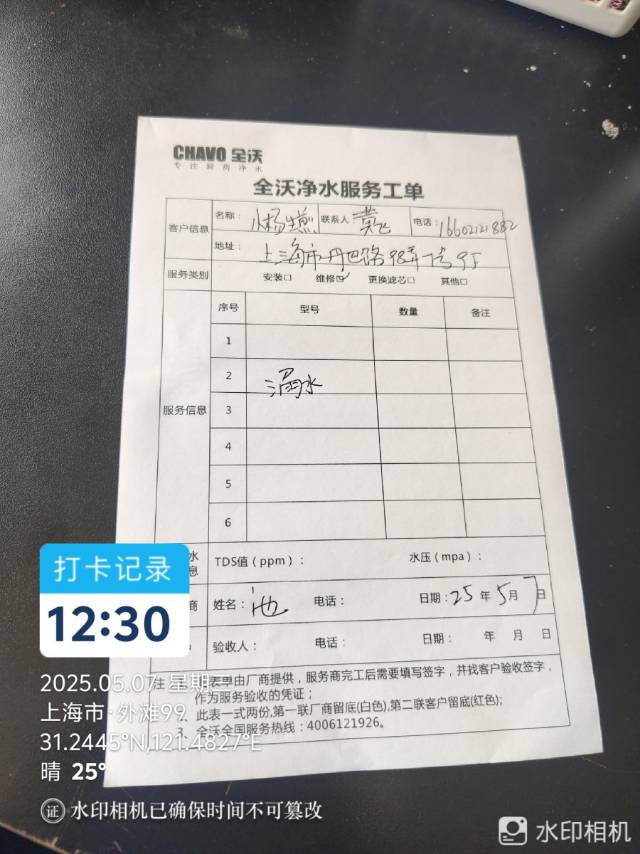 CHAVO 全沃
专注厨房净水
全沃净水服务工单
客户信息 名称： 联系人： 黄飞 电话：16602121882
地址： 上海市丹巴路98弄7号95
服务类别 安装□ 维修☑ 更换滤芯□ 其他□
服务信息 序号 型号 数量 备注
1
2 漏水
3
4
5
6
水 息 TDS值（ppm）： 水压（mpa）：
商 姓名： 池 电话： 日期：25年5月7日
验收人： 电话： 日期： 年 月 日
注 表单由厂商提供，服务商完工后需要填写签字，并找客户验收签字，
作为服务验收的凭证；
2、此表一式两份,第一联厂商留底(白色),第二联客户留底(红色);
3、全沃全国服务热线：4006121926。
打卡记录
12:30
2025.05.07 星期三
上海市·外滩99
31.2445°N,121.4827°E
晴 25°
证 水印相机已确保时间不可篡改
水印相机